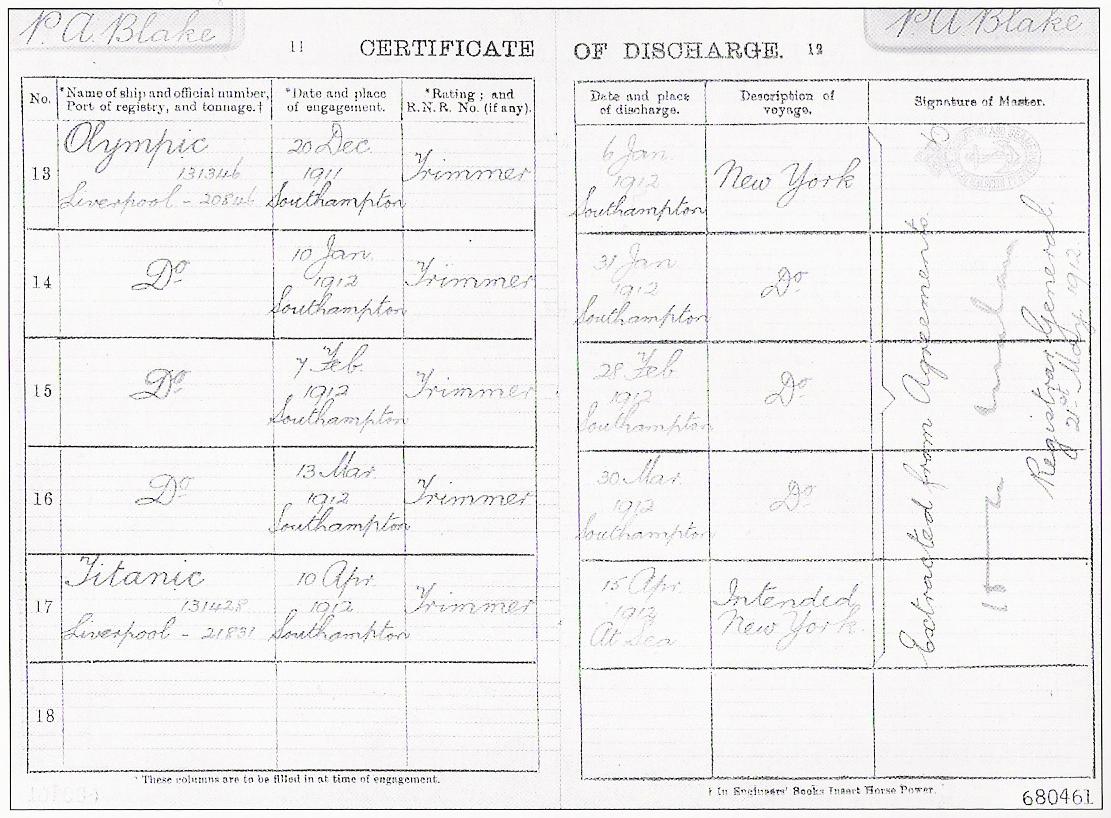 P. A. Blake
P. A. Blake
11 CERTIFICATE OF DISCHARGE. 12
No.
*Name of ship and official number,
Port of registry, and tonnage.†
*Date and place
of engagement.
*Rating; and
R.N.R. No. (if any).
Date and place
of discharge.
Description of
voyage.
Signature of Master.
13
Olympic
131346
Liverpool - 20846
20 Dec
1911
Southampton
Trimmer
6 Jan.
1912
Southampton
New York
14
Do
10 Jan.
1912
Southampton
Trimmer
31 Jan
1912
Southampton
Do
15
Do
7 Feb
1912
Southampton
Trimmer
28 Feb
1912
Southampton
Do
16
Do
13 Mar.
1912
Southampton
Trimmer
30 Mar.
1912
Southampton
Do
17
Titanic
131428
Liverpool - 21831
10 Apr.
1912
Southampton
Trimmer
15 Apr.
1912
At Sea
Intended
New York.
Extracted from Agreements.
Registrar General.
21st May 1912
18
* These columns are to be filled in at time of engagement.
† In Engineers' Books Insert Horse Power.
680461